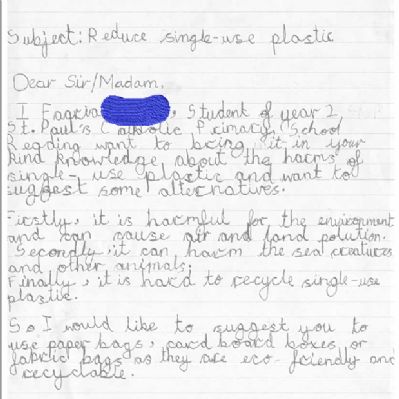 Subject: Reduce single-use plastic
Dear Sir/Madam,
I Fagria , Student of year 2,
St. Paul's Catholic Primary School
Reading want to bring it in your
kind knowledge about the harms of
single-use plastic and want to
suggest some alternatives.
Firstly, it is harmful for the environment
and can cause air and land polution.
Secondly, it can harm the sea creatures
and other animals;
Finally, it is hard to recycle single-use
plastic.
So I would like to suggest you to
use paper bags, card board boxes or
fabric bags as they are eco-friendly and
recyclable.